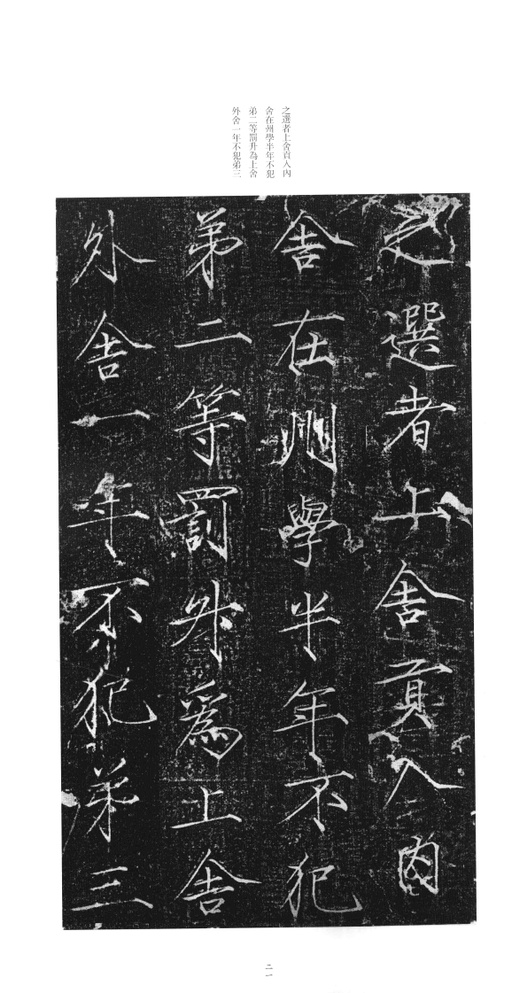 之選者上舍貢入內
舍在州學半年不犯
弟二等罰升為上舍
外舍一年不犯弟三
之選者上舍貢入内
舍在州學半年不犯
弟二等罰升爲上舍
外舍一年不犯弟三
二一